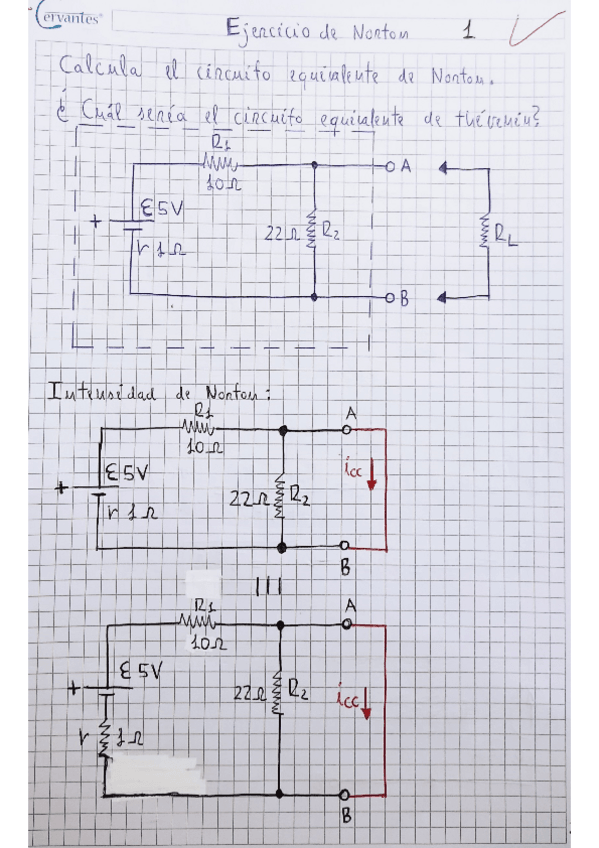 Cervantes
Ejercicio de Norton 1
Calcula el circuito equivalente de Norton.
¿Cuál sería el circuito equivalente de thévenin?
R1
10Ω
A
+
ε 5V
r 1Ω
22Ω R2
RL
B
Intensidad de Norton:
R1
10Ω
A
+
ε 5V
r 1Ω
22Ω R2
icc
B
R1
10Ω
A
+
ε 5V
22Ω R2
icc
r 1Ω
B